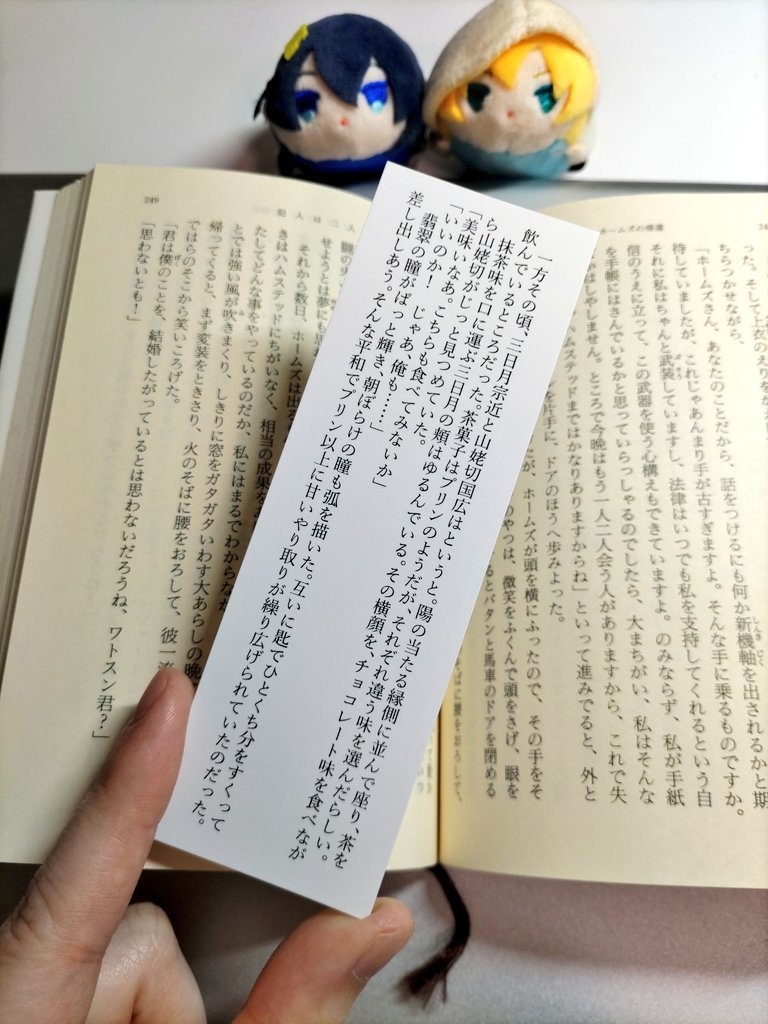 一方その頃、三日月宗近と山姥切国広はというと。陽の当たる縁側に並んで座り、茶を
飲んでいるところだった。茶菓子はプリンのようだが、それぞれ違う味を選んだらしい。
抹茶味を口に運ぶ三日月の頬はゆるんでいる。その横顔を、チョコレート味を食べなが
ら山姥切がじっと見つめていた。
「美味いなあ。こちらも食べてみないか」
「いいのか！　じゃあ、俺も……」
翡翠の瞳がぱっと輝き、朝ぼらけの瞳も弧を描いた。互いに匙でひとくち分をすくって
差し出しあう。そんな平和でプリン以上に甘いやり取りが繰り広げられていたのだった。
ホームズの帰還
った。そして上衣のえりをか
ちらつかせながら、
「ホームズさん、あなたのことだから、話をつけるにも何か新機軸を出されるかと期
待していましたが、これじゃあんまり手が古すぎますよ。そんな手に乗るものですか。
それに私はちゃんと武装していますし、法律はいつでも私を支持してくれるという自
信のうえに立って、この武器を使う心構えもできていますよ。のみならず、私が手紙
を手帳にはさんでいるかと思っていらっしゃるのでしたら、大まちがい、私はそんな
はしやしません。ところで今晩はもう一人二人会う人がありますから、これで失
ムステッドまではかなりありますからね」といって進みでると、外と
を片手に、ドアのほうへ歩みよった。
が、ホームズが頭を横にふったので、その手をそ
のやつは、微笑をふくんで頭をさげ、眼を
るとバタンと馬車のドアを閉める
そばに腰をおろして、
249
犯人は二人
せようとは夢にも思
それから数日、ホームズは出る
きはハムステッドにちがいなく、相当の成果をお
たしてどんな事をやっているのだか、私にはまるでわからな
とでは強い風が吹きまくり、しきりに窓をガタガタいわす大あらしの晩
帰ってくると、まず変装をときさり、火のそばに腰をおろして、彼一流
ではらのそこから笑いころげた。
「君は僕のことを、結婚したがっているとは思わないだろうね、ワトスン君？」
「思わないとも！」